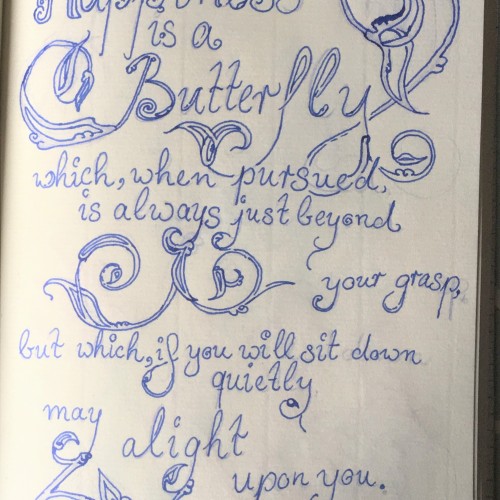 Happiness
is a
Butterfly
which, when pursued,
is always just beyond
your grasp,
but which, if you will sit down
quietly
may
alight
upon you.